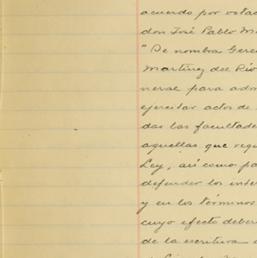 acuerdo por vota
don José Pablo M
"Se nombra Gere
Martínez del Río
neral para adm
ejercitar actos de
das las facultade
aquellas que requ
Ley, así como pa
defender los inter
y en los términos
cuyo efecto deber
de la escritura